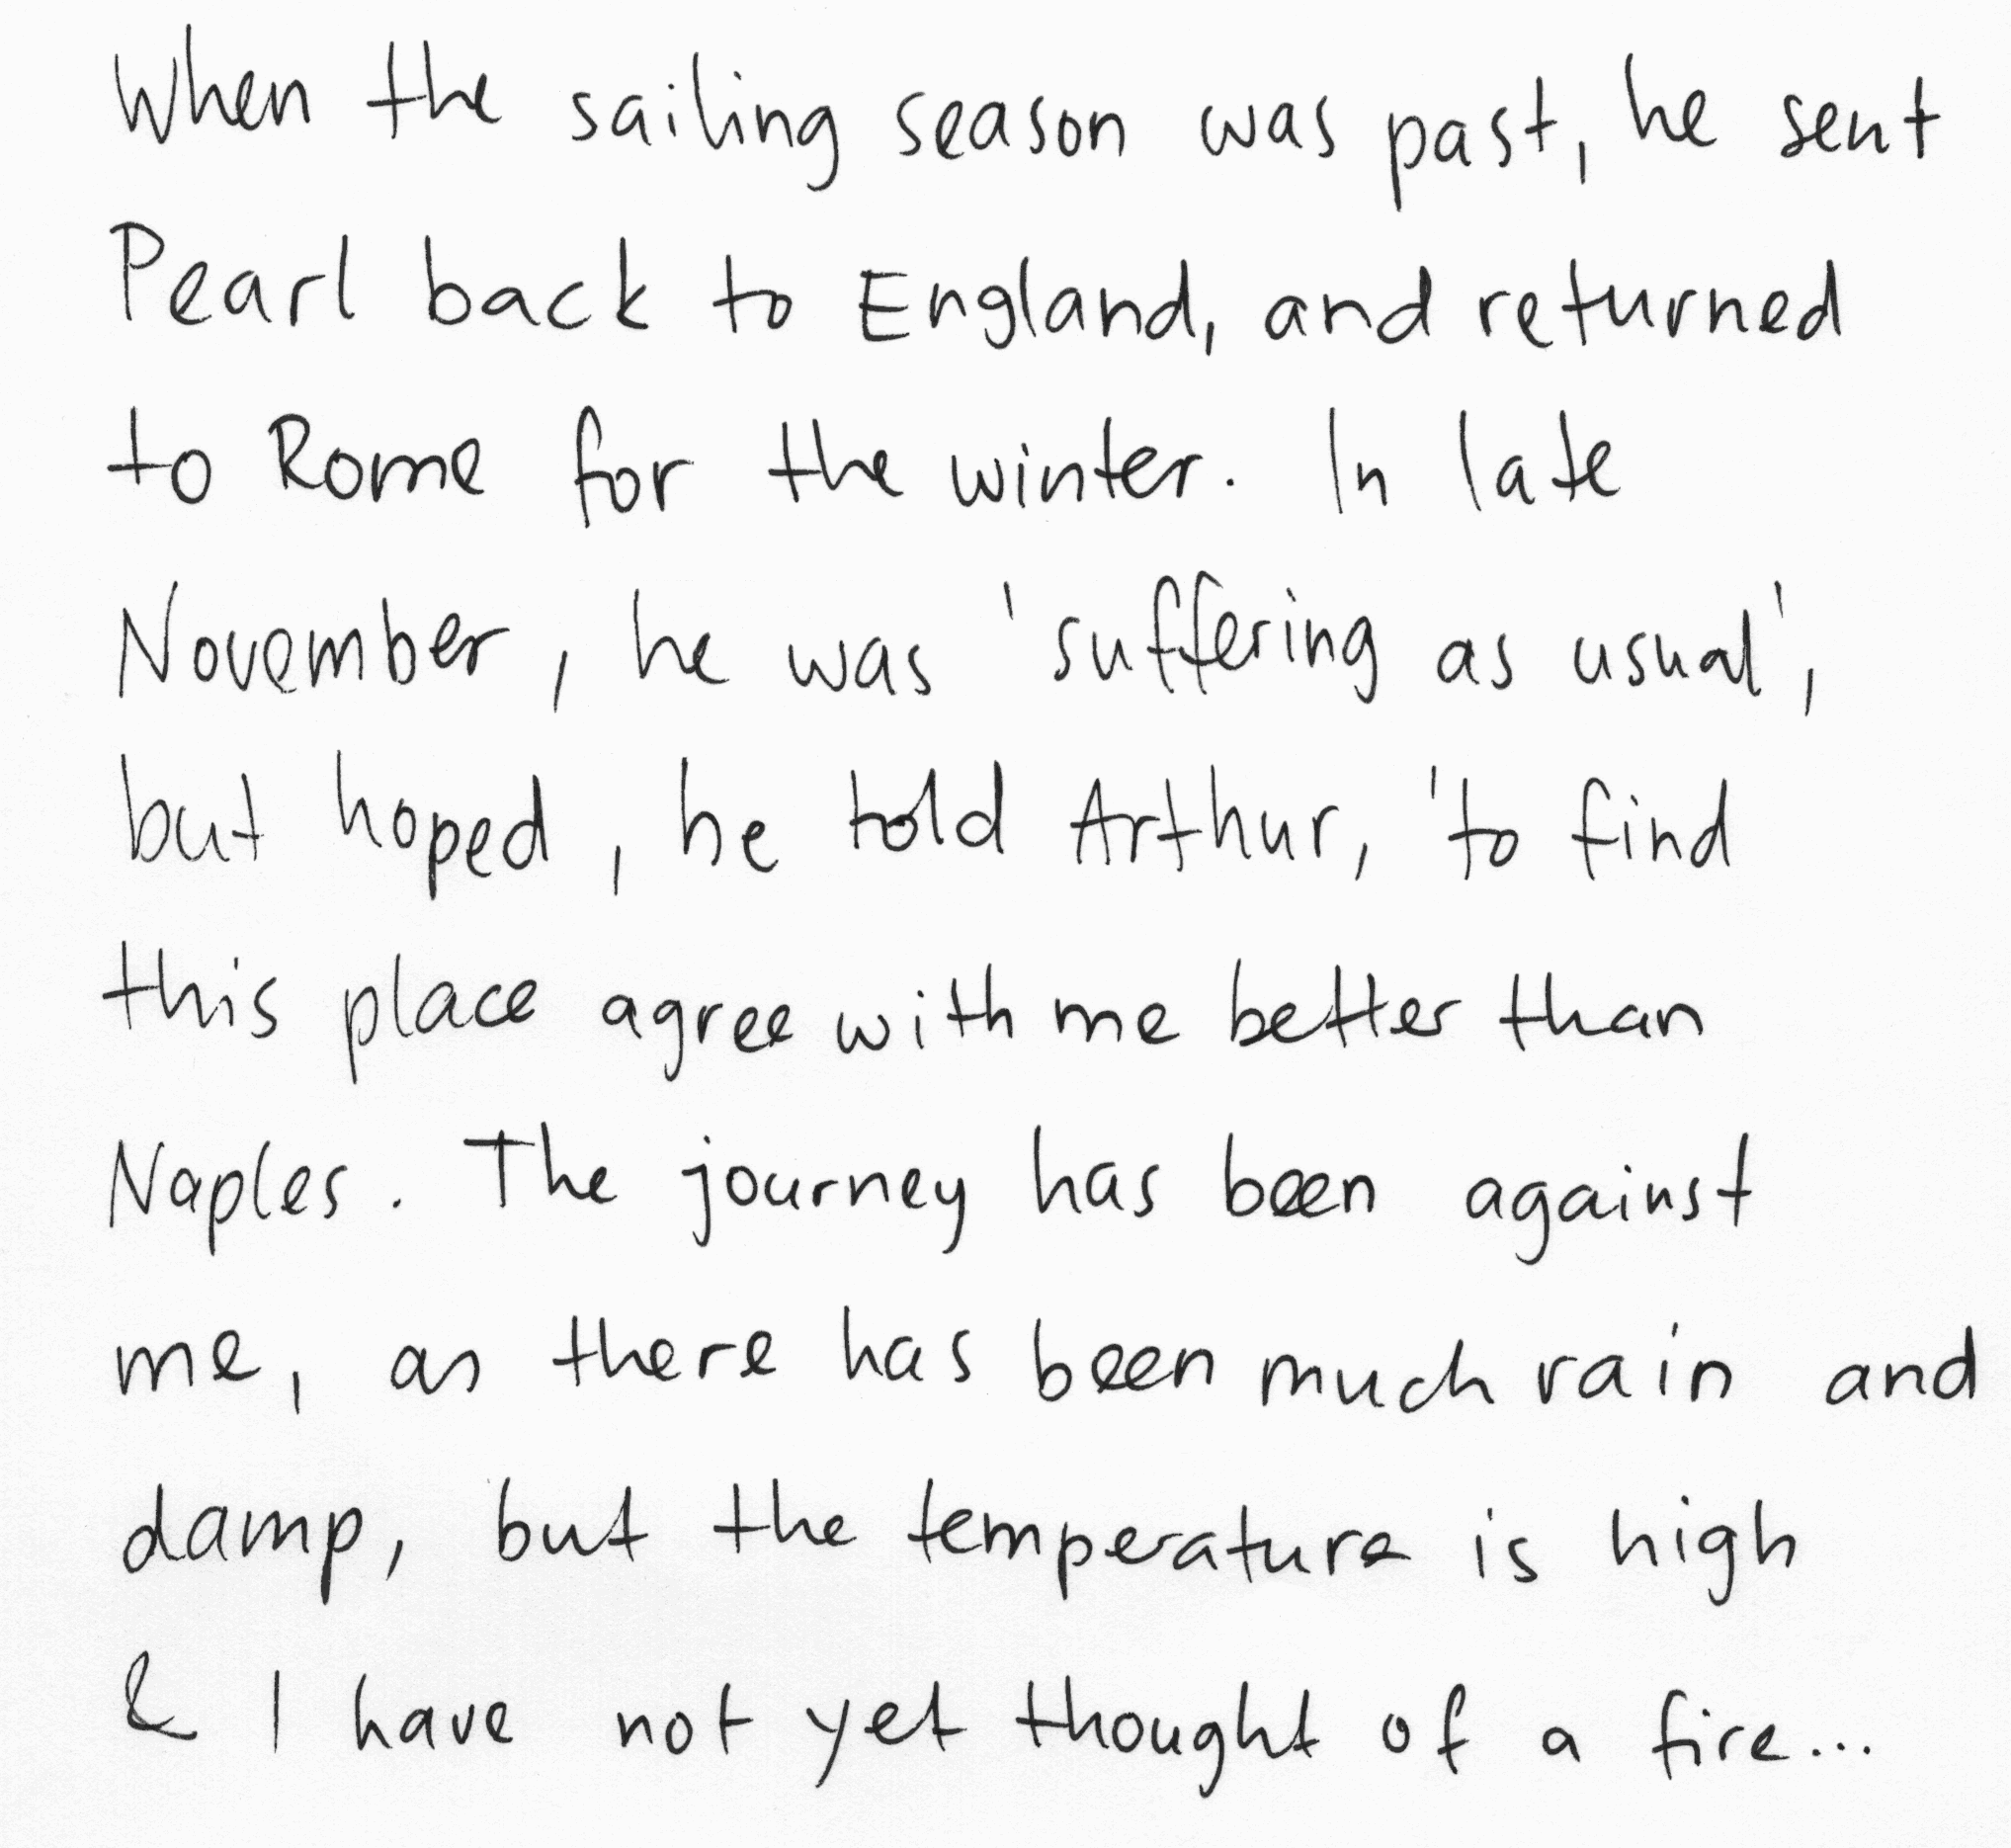 When the sailing season was past, he sent
Pearl back to England, and returned
to Rome for the winter. In late
November, he was 'suffering as usual',
but hoped, he told Arthur, 'to find
this place agree with me better than
Naples. The journey has been against
me, as there has been much rain and
damp, but the temperature is high
& I have not yet thought of a fire...